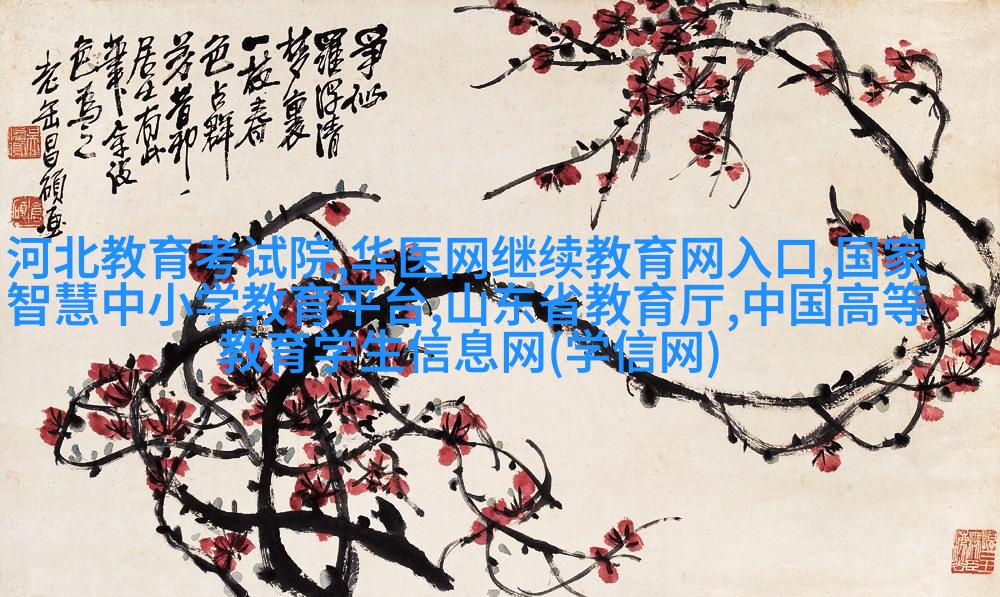 爭似
羅浮清
梦裏
一枝春
色占群
芳昔邪
居士有此
筆余
為之
老缶昌碩畫
河北教育考试院,华医网继续教育网入口,国家
智慧中小学教育平台,山东省教育厅,中国高等
教育学生信息网(学信网)